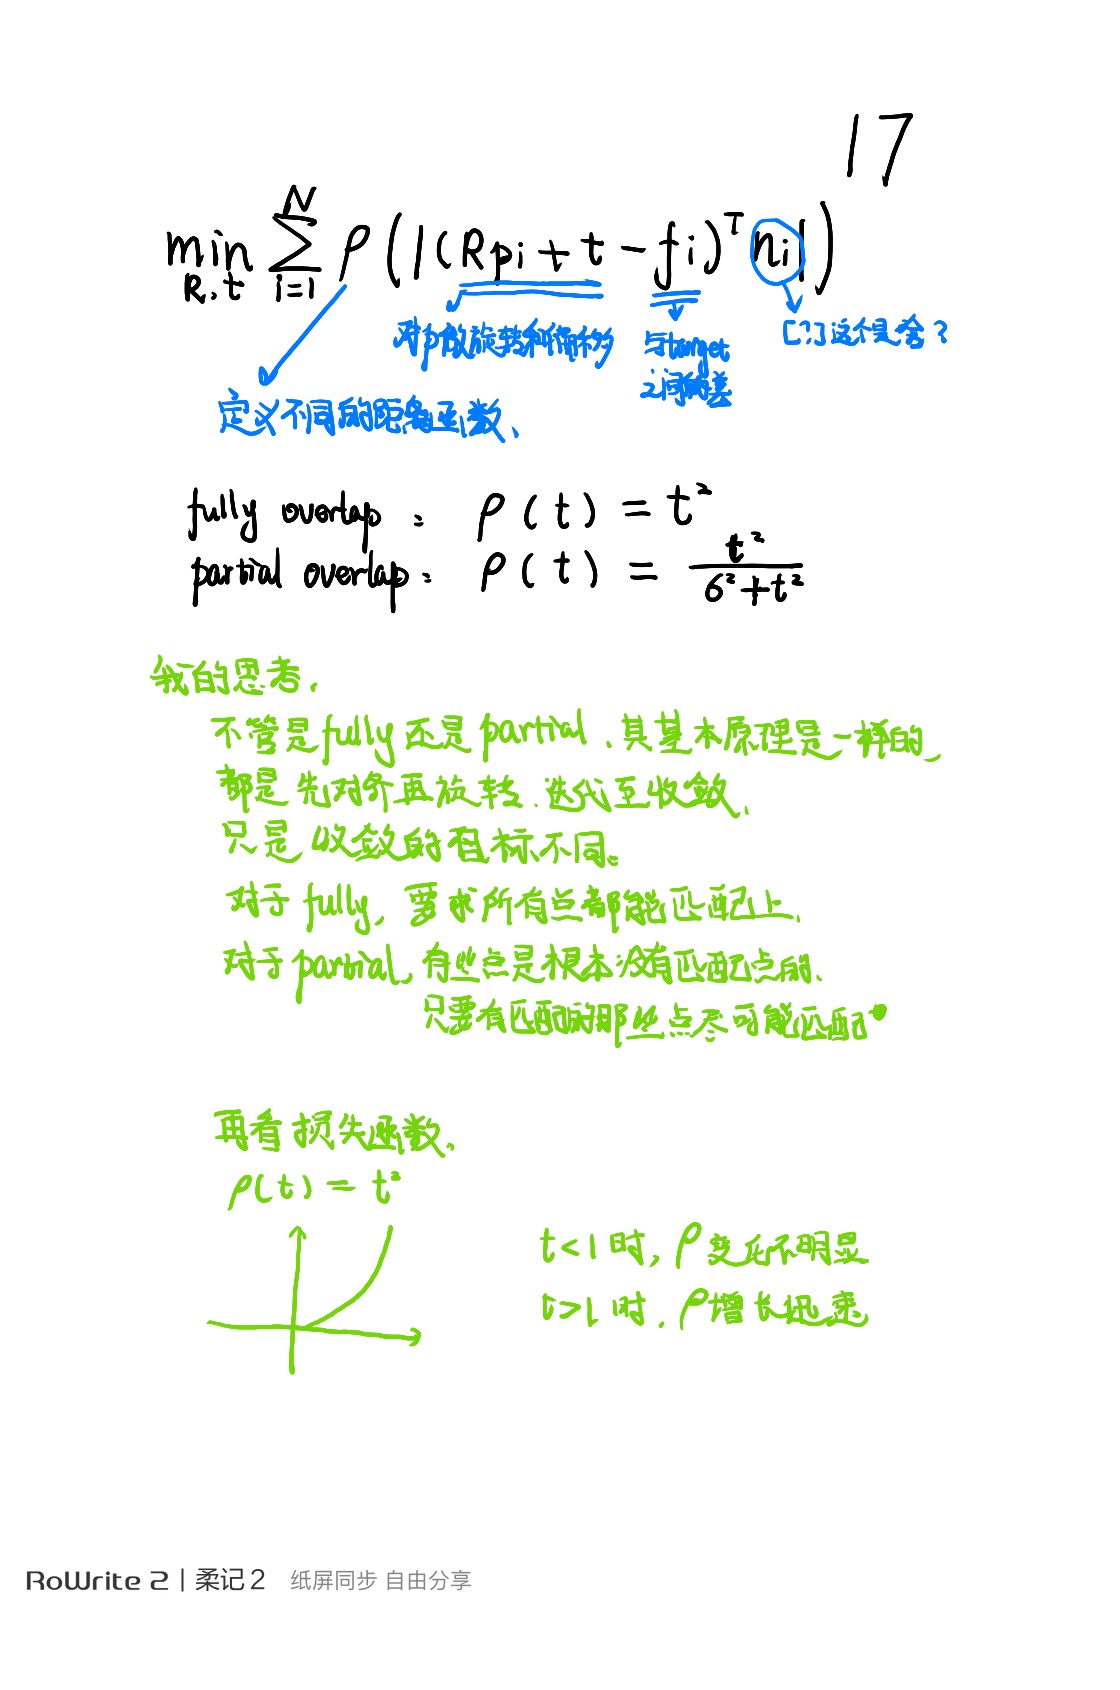 17
min R,t N∑i=1 ρ(|(Rpi + t − fi)ᵀ ni|)
对p做旋转和偏移
与target
之间的差
[?]这个是啥?
定义不同的距离函数、
fully overlap: ρ(t) = t²
partial overlap: ρ(t) = t²/(6²+t²)
我的思考.
不管是fully还是partial、其基本原理是一样的、
都是先对齐再旋转、迭代至收敛、
只是收敛的目标不同。
对于fully, 要求所有点都能匹配上、
对于partial, 有些点是根本没有匹配点的、
只要有匹配的那些点尽可能匹配。
再看损失函数、
ρ(t) = t²
t<1时, ρ变化不明显
t>1时, ρ增长迅速
RoWrite 2 | 柔记2 纸屏同步 自由分享